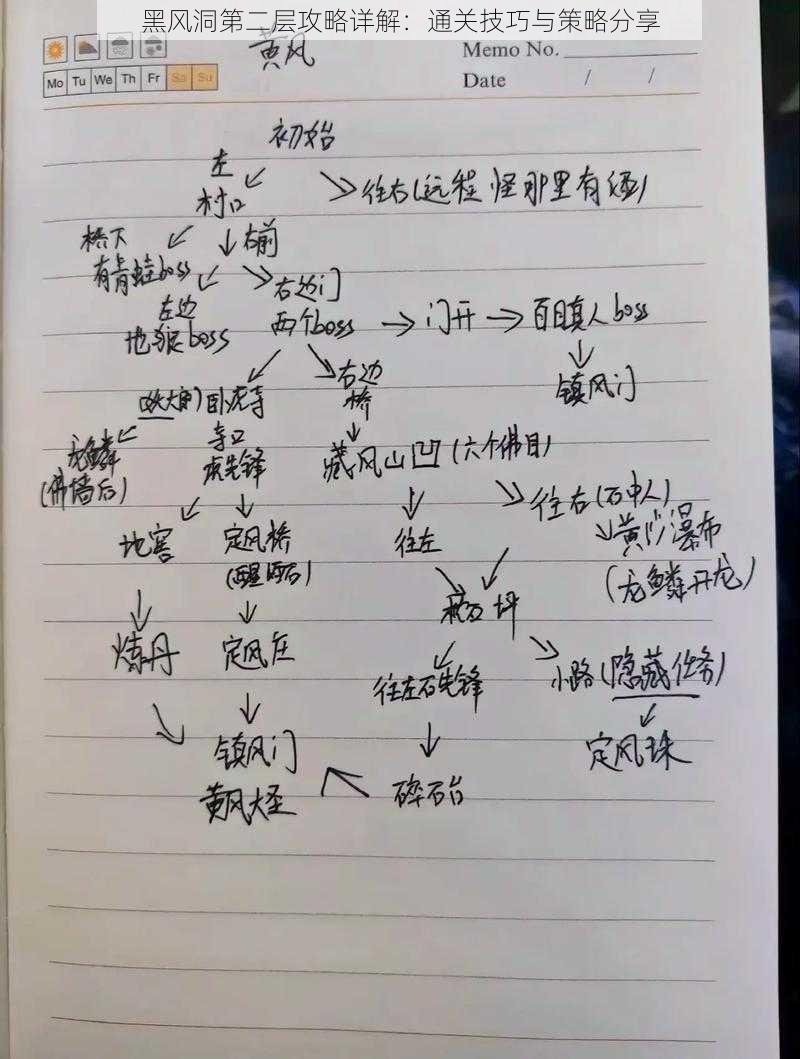 黑风洞第二层攻略详解：通关技巧与策略分享
黄风
Memo No.
Mo Tu We Th Fr Sa Su
Date / /
初始
左
村口
往右(远程怪那里有酒)
桥下
有青蛙boss
右前
左边
地狼boss
右边门
两个boss
门开
百目真人boss
镇风门
卧虎寺
右边
桥
龙鳞
(佛墙后)
寺口
虎先锋
藏风山凹(六个佛目)
往右(石中人)
地窖
定风桥
往左
黄沙瀑布
(龙鳞开龙)
炼丹
定风庄
往左石先锋
小路(隐藏任务)
镇风门
黄风大圣
碎石台
定风珠